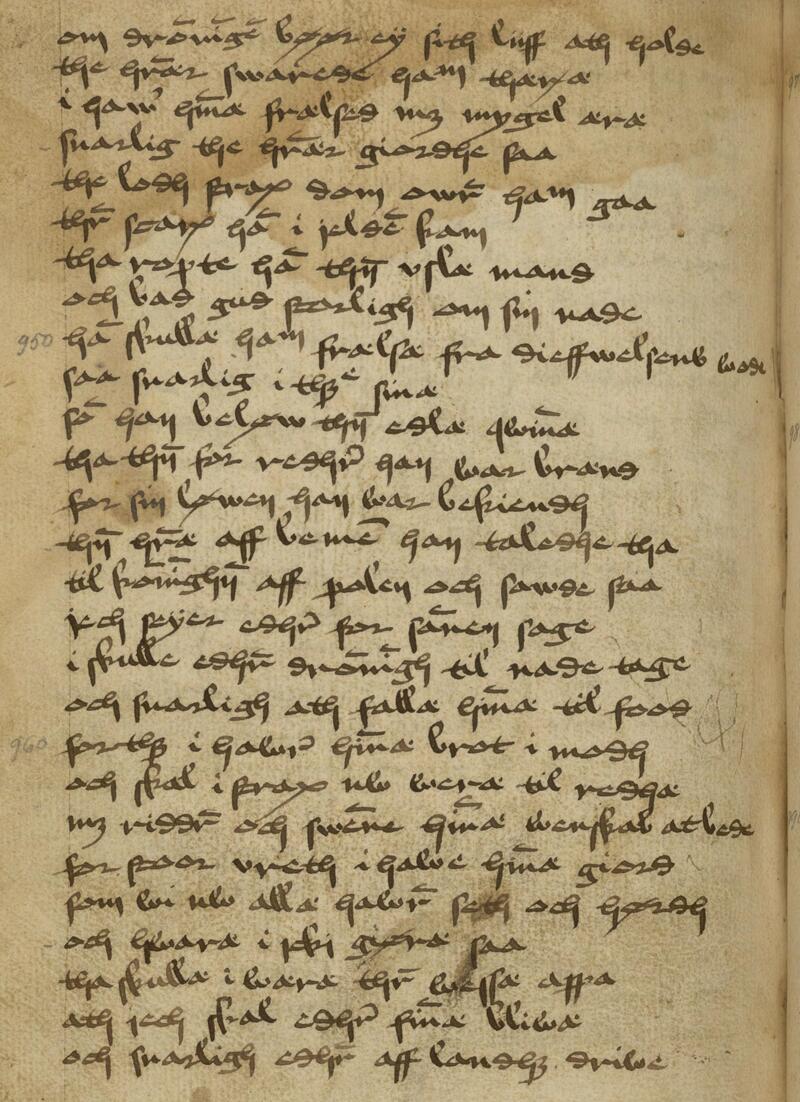 om dro̅ni̅ge̅ bøør ey sith liiff ath holde
the hr̅ær swarede ham thæræ
i haw̛ hm̅æ frælsed mꝫ mygel æræ
snarlig the hr̅ær giordhe saa
the lodh strax dom owr̅ ham gaa
thr̅ starx ha̅ i jelde̅ kam
tha ropte ha̅ thn̅ vslæ mand
och bad gud storligh om sin nade
950 ha̅ skullæ ham frælsæ fra dieffwelsens wode
saa snarlig i thꝫe sinæ
so̅ han beløw thn̅ edlæ qwin̅æ
tha thn̅ for redhr̛ han war brænd
for sin løwen han war bekiendh
thn̅ hr̅æ aff beme̅ han taledhe tha
til ko̅ni̅ghn̅ aff polen och sawde saa
jech seyer edhr̛ for sa̅nen sage
i skulle edhr̅ dro̅ni̅gh til nade tage
och snarligh ath fallæ hm̅æ til food
960 forthꝫ i hawr̛ hm̅æ brot i modh
och skal i strax nw weræ til redhæ
mꝫ riddr̅ och swe̅ne hm̅æ wenskab at bede
for stoor vreth i hawe hm̅æ giord
som wi nw allæ hawr̅ seth och hørdh
och hwaræ i jcki giøræ saa
tha skullæ i wæræ thr̅ wessæ appa
ath jech skal edhr̛ fin̅æ bliwæ
och snarligh edhr̅ aff landhꝫ driwe